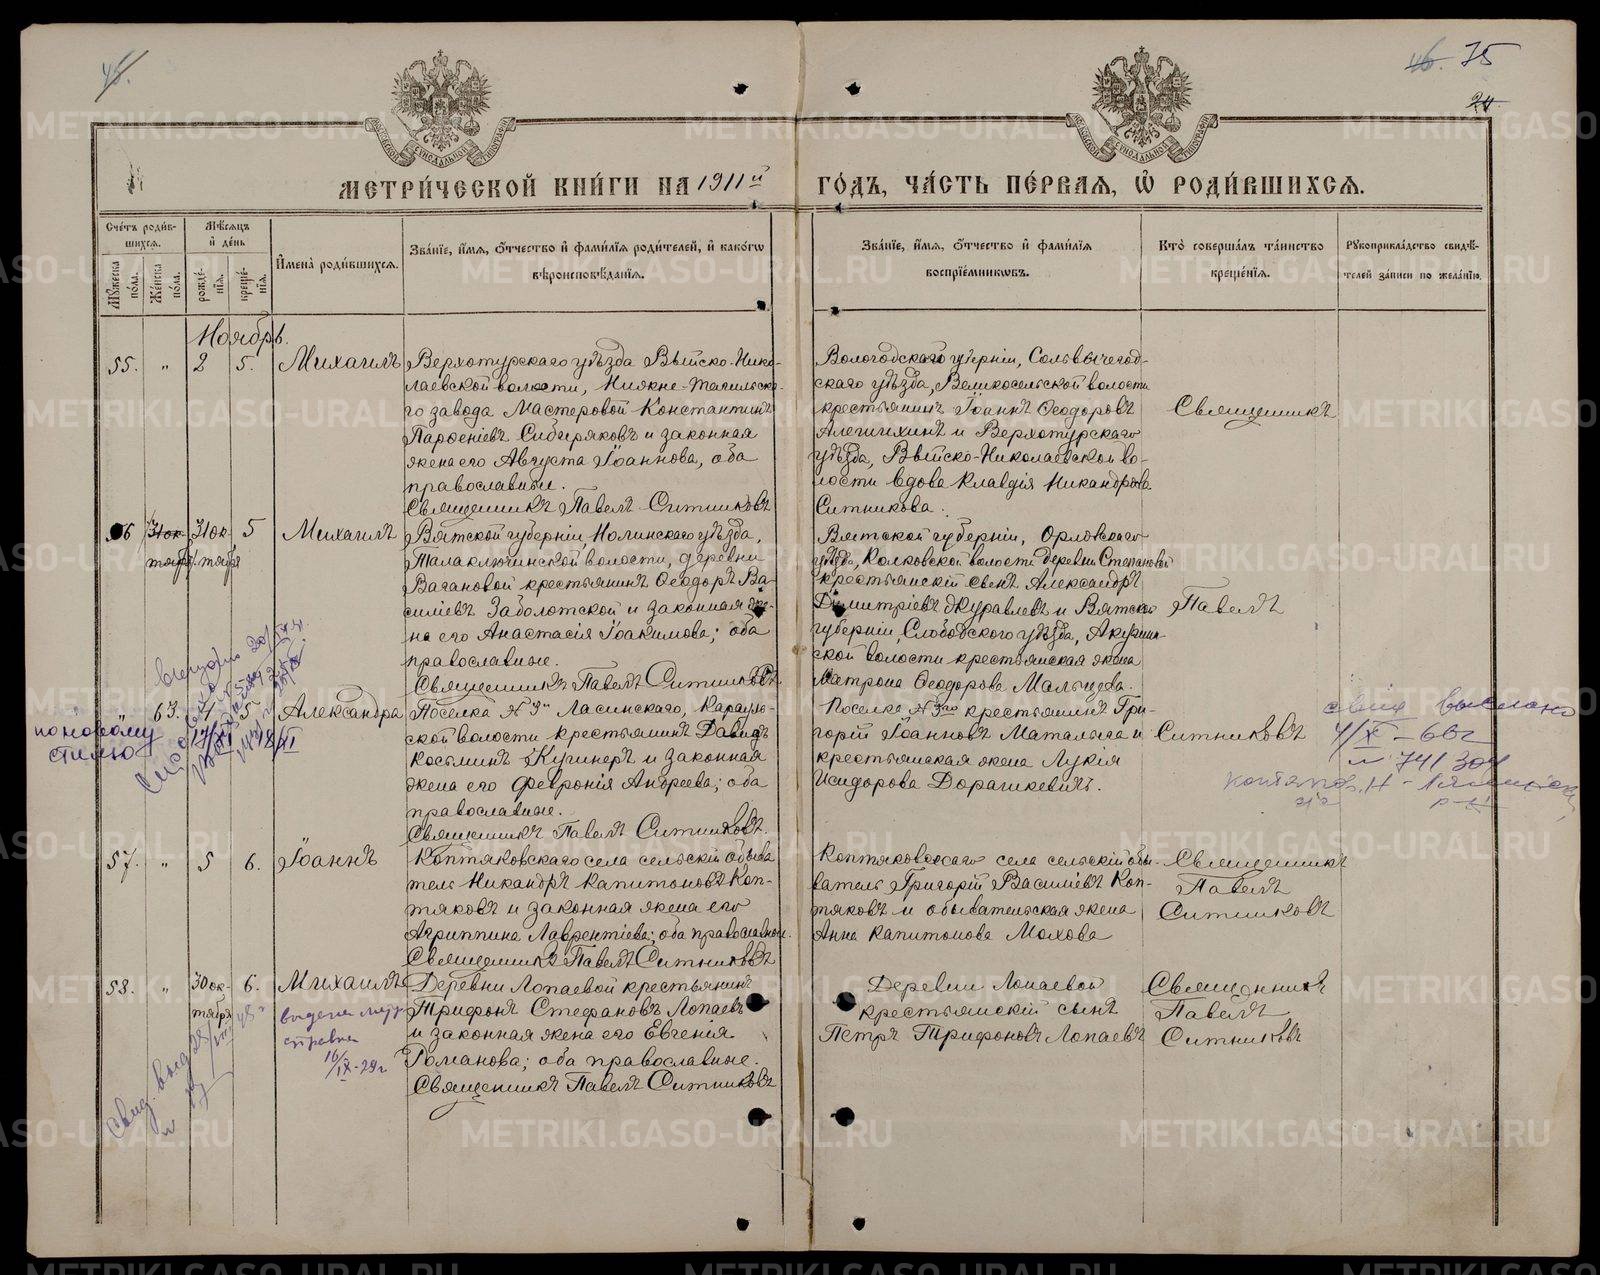 75
МЕТРИ́ЧЕСКОЙ КНИ́ГИ НА 1911й ГО́ДЪ, ЧА́СТЬ ПЕ́РВАЯ, Ѡ РОДИ́ВШИХСЯ.
Сче́тъ роди́в-
шихся.
Мꙋ́жеска по́ла.
Же́нска по́ла.
Мѣ́сяцъ
и де́нь
рожде́-
нїя.
креще́-
нїя.
Имена̀ роди́вшихся.
Зва́нїе, и́мя, о́тчество и фами́лїя роди́телей, и како́гѡ
вѣроисповѣ́данїя.
Зва́нїе, и́мя, о́тчество и фами́лїя
воспрїе́мникѡвъ.
Кто̀ соверша́лъ та́инство
креще́нїя.
Рꙋкоприкла́дство свидѣ́-
телей за́писи по жела́нїю.
Ноябрь.
55. " 2 5. Михаилъ
Верхотурскаго уѣзда Выйско-Нико-
лаевской волости, Нижне-Тагильска-
го завода Мастеровой Константинъ
Парѳеніевъ Сибиряковъ и законная
жена его Августа Іоаннова, оба
православные.
Священникъ Павелъ Ситниковъ
Вологодской губерніи, Сольвычегод-
скаго уѣзда, Великосельской волости
крестьянинъ Іоаннъ Ѳеодоровъ
Алешихинъ и Верхотурскаго
уѣзда, Выйско-Николаевской во-
лости вдова Клавдія Никандрова
Ситникова.
Священникъ
56 31 ок- 5 Михаилъ
тября
Вятской губерніи, Нолинскаго уѣзда,
Талаключинской волости, деревни
Вагановой крестьянинъ Ѳеодоръ Ва-
силіевъ Заболотской и законная же-
на его Анастасія Іоакимова; оба
православные.
Священникъ Павелъ Ситниковъ
Вятской губерніи, Орловскаго
уѣзда, Колковской волости деревни Степановой
крестьянскій сынъ Александръ
Димитріевъ Журавлевъ и Вятской
губерніи, Слободского уѣзда,
ской волости крестьянская жена
Матрона Ѳеодорова Мальцева.
Павелъ
63. 1 5 Александра
по новому
стилю
14/XI 18/XI
Поселка № 3й Ласинскаго, Карауль-
ской волости крестьянинъ Давидъ
Косьминъ Кушнеръ и законная
жена его Февронія Андреева; оба
православные.
Священникъ Павелъ Ситниковъ.
Поселка № 3го крестьянинъ Гри-
горій Іоанновъ Маталыга и
крестьянская жена Лукія
Исидорова Дорашкевичъ.
Ситниковъ
выслано
4/X - 66г
741304
57. " 5 6. Іоаннъ
Коптяковскаго села сельскій обыва
тель Никандръ Капитоновъ Коп-
тяковъ и законная жена его
Агриппина Лаврентіева; оба православные.
Священникъ Павелъ Ситниковъ
Коптяковского села сельскій обы-
ватель Григорій Василіевъ Коп-
тяковъ и обывательская жена
Анна Капитонова Мохова
Священникъ
Павелъ
Ситниковъ
58. " 30 ок- 6. Михаилъ
тября
Деревни Лопаевой крестьянинъ
Трифонъ Стефановъ Лопаевъ
и законная жена его Евгенія
Романова; оба православные.
Священникъ Павелъ Ситниковъ
Деревни Лопаевой
крестьянскій сынъ
Петръ Трифоновъ Лопаевъ
Священникъ
Павелъ
Ситниковъ
справка
16/IX-29г
METRIKI.GASO-URAL.RU